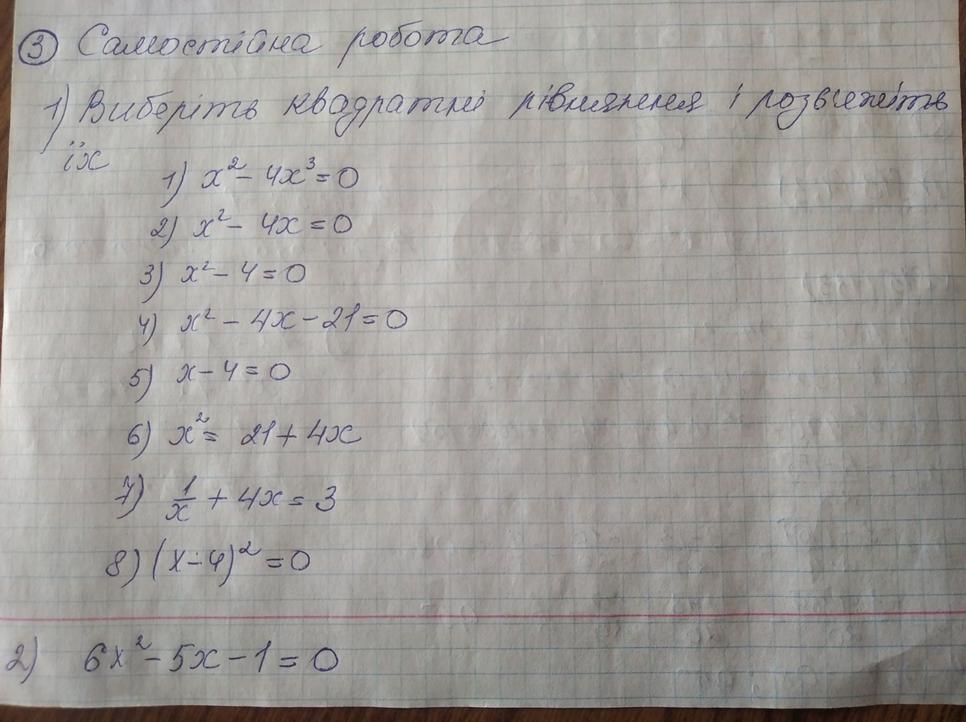 ③ Самостійна робота
1) Виберіть квадратні рівняння і розв'яжіть
їх
1) x² - 4x³ = 0
2) x² - 4x = 0
3) x² - 4 = 0
4) x² - 4x - 21 = 0
5) x - 4 = 0
6) x² = 21 + 4x
7) 1/x + 4x = 3
8) (x - 4)² = 0
2) 6x² - 5x - 1 = 0